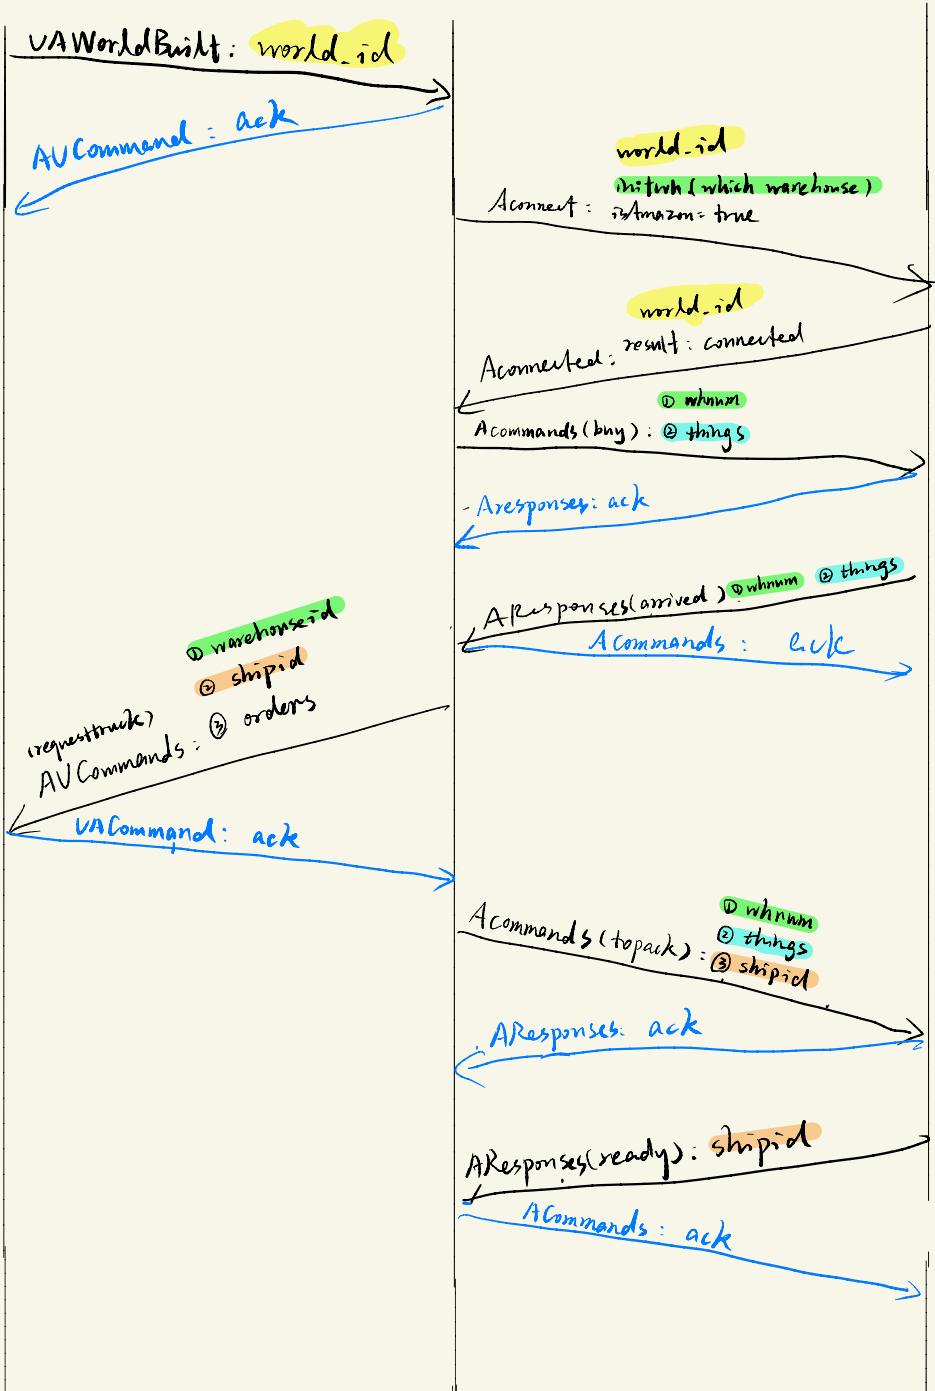 UAWorldBuilt: world_id
AUCommand: ack
world_id
initwh (which warehouse)
Aconnect: isAmazon = true
world_id
Aconnected: result: connected
① whnum
Acommands (buy): ② things
Aresponses: ack
AResponses (arrived) ① whnum ② things
ACommands: ack
① warehouseid
② shipid
③ orders
(requesttruck)
AUCommands:
UACommand: ack
① whnum
② things
Acommands (topack): ③ shipid
AResponses: ack
AResponses (ready): shipid
ACommands: ack